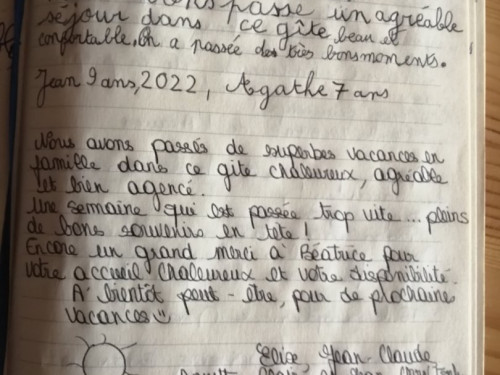 passé un agréable
séjour dans ce gîte beau et
confortable. On a passée des très bons moments.
Jean 9 ans, 2022, Agathe 7 ans
Nous avons passés de superbes vacances en
famille dans ce gîte chaleureux, agréable
et bien agencé.
Une semaine qui est passée trop vite... pleins
de bons souvenirs en tête !
Encore un grand merci à Béatrice pour
votre accueil chaleureux et votre disponibilité.
A bientôt peut-être, pour de prochaine
vacances
Elise, Jean-Claude,